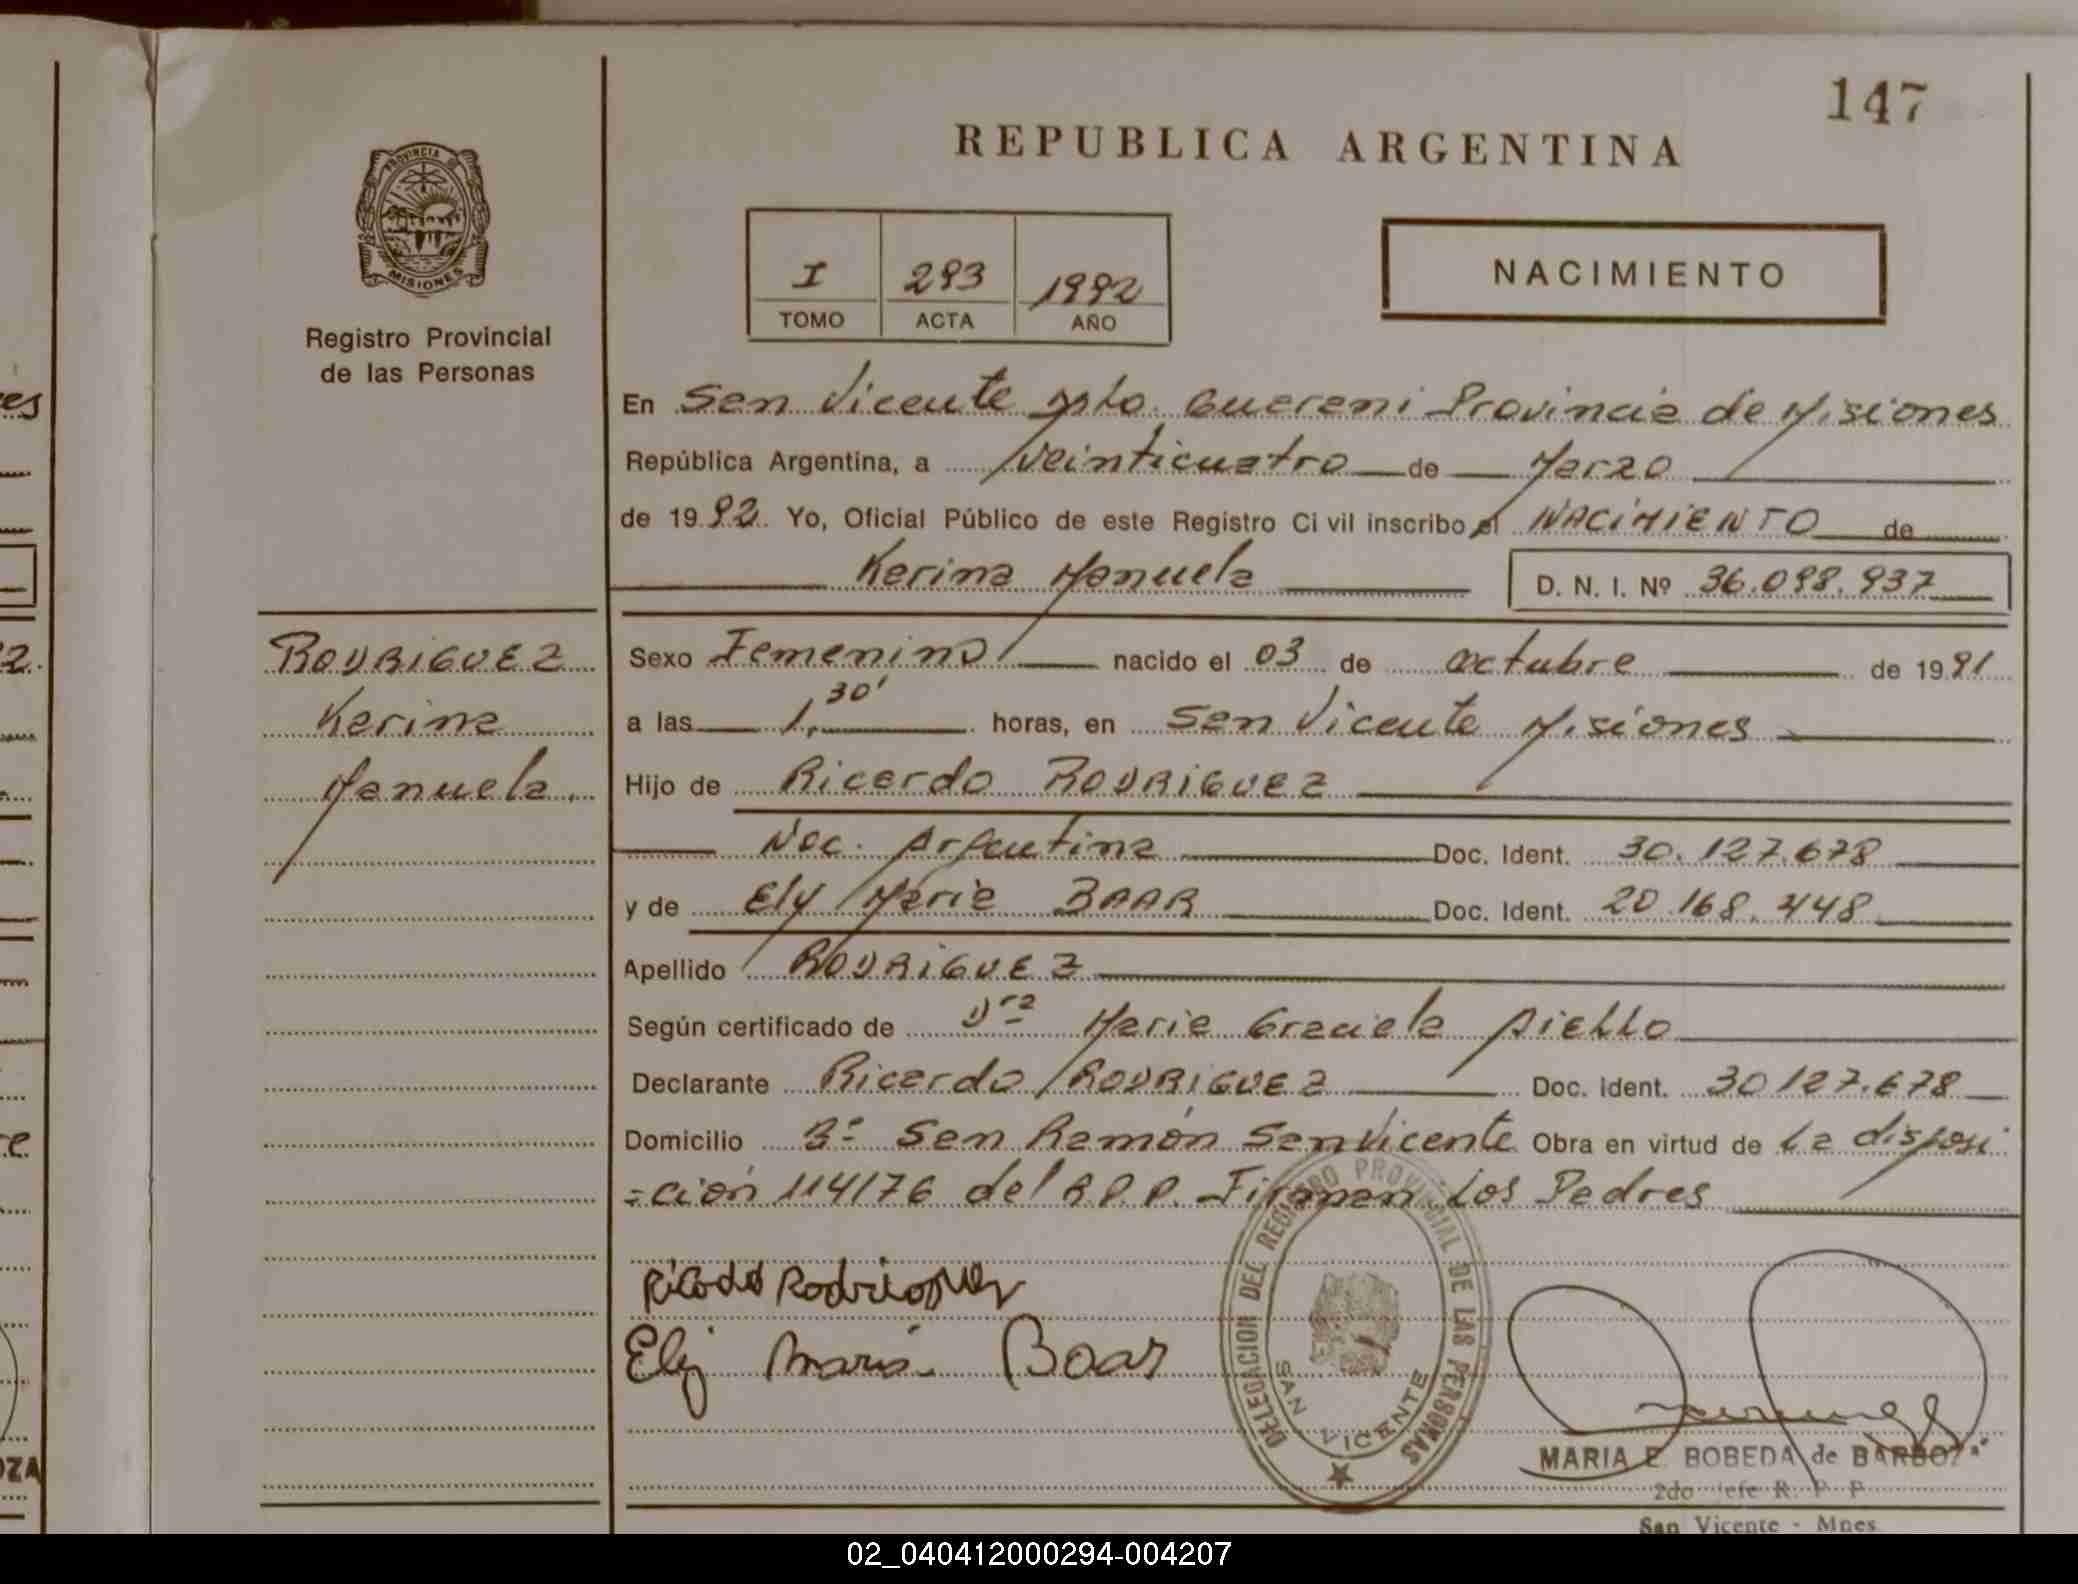 147
REPUBLICA ARGENTINA
PROVINCIA DE
MISIONES
Registro Provincial
de las Personas
I 293 1992
TOMO ACTA AÑO
NACIMIENTO
En San Vicente Dpto. Guarani Provincia de Misiones
República Argentina, a veinticuatro de Marzo
de 1992. Yo, Oficial Público de este Registro Civil inscribo el NACIMIENTO de
Karina Manuela D. N. I. Nº 36.098.937
RODRIGUEZ
Karina
Manuela.
Sexo Femenino nacido el 03 de octubre de 1991
a las 1,30' horas, en San Vicente Misiones
Hijo de Ricardo RODRIGUEZ
Nac. Argentina Doc. Ident. 30.127.678
y de Ely Maria BAAR Doc. Ident. 20.168.448
Apellido RODRIGUEZ
Según certificado de Dra Maria Graciela AIELLO
Declarante Ricardo RODRIGUEZ Doc. Ident. 30127.678
Domicilio Bº San Ramón San Vicente Obra en virtud de la disposi
=ción 114/76 del R.P.P. Firman Los Padres
Ricardo Rodriguez
Ely Maria Baar
DELEGACION DEL REGISTRO PROVINCIAL DE LAS PERSONAS
SAN VICENTE
MARIA E. BOBEDA de BARBOZA
2do Jefe R. P. P.
San Vicente - Mnes.
02_040412000294-004207